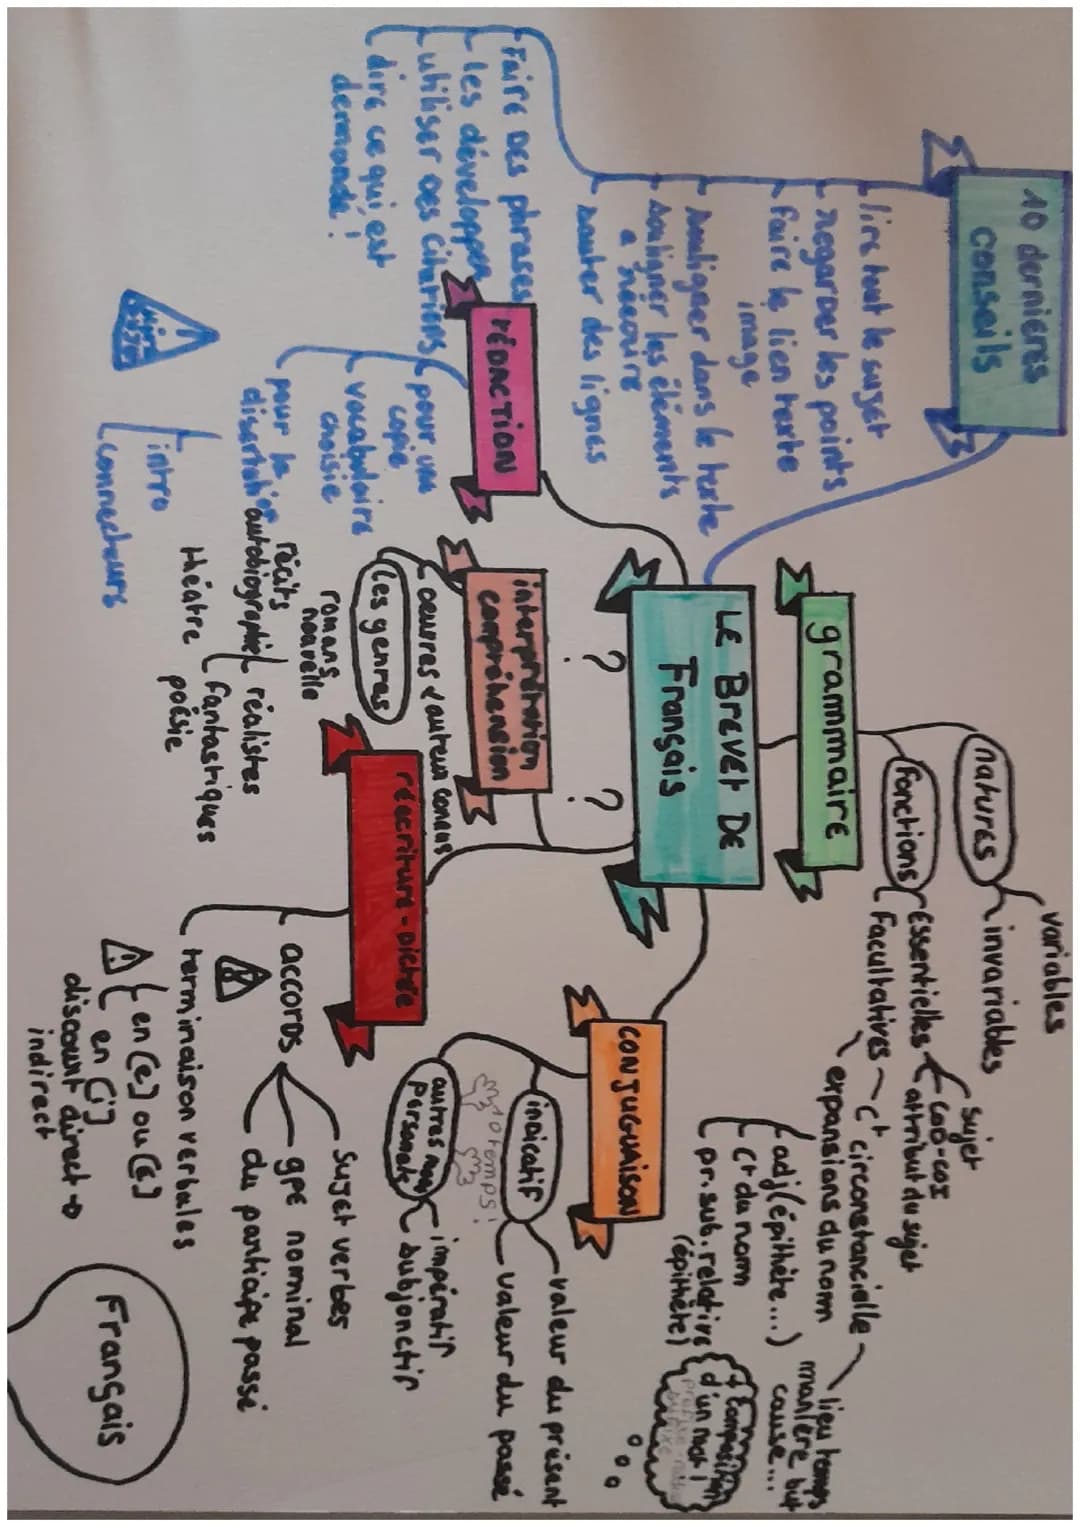 10 dernières
conseils
lire tout le sujet
regarder les points
faire le lien texte
image
souligner dans le texte
souligner les éléments
a réécrire
sauter des lignes
Faire des phrases
les développer
utiliser des citations
dire ce qui est
demandé !
LE BREVET DE
Français
? ?
grammaire
natures
variables
invariables
fonctions
essentielles
sujet
COD-COI
attribut du sujet
Facultatives
ct circonstancielle
lieu temps
manière but
cause...
expansions du nom
adj (épithète...)
ct du nom
pr. sub. relative
(épithète)
+ composition
d'un mot !
CONJUGUAISON
indicatif
valeur du présent
valeur du passé
temps !
autres
personnels
impératif
subjonctif
réécriture - Dictée
accords
sujet verbes
gpe nominal
du participe passé
terminaison verbales
en (é) ou (è)
en (i)
discount direct →
indirect
interprétation
compréhension
oeuvres + auteur connus
les genres
romans
nouvelle
récits
autobiographie
réalistes
fantastiques
théatre
poésie
RÉDACTION
pour une
copie
vocabulaire
choisie
pour la
disertation
intro
connecteurs
Français